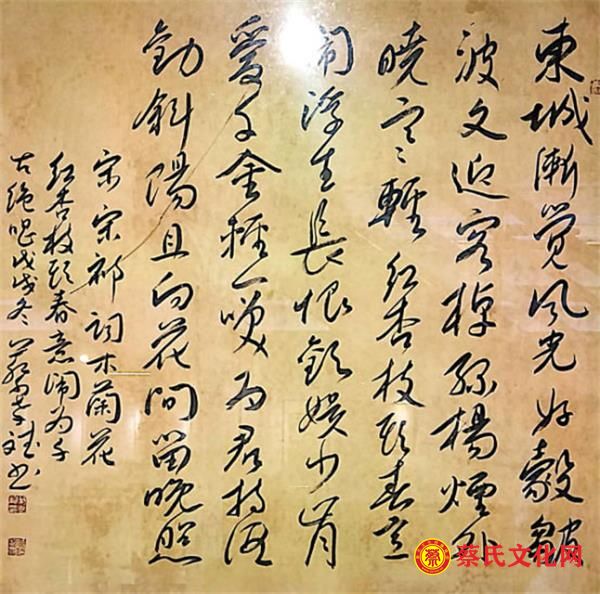 東城漸覺风光好縠皺
波文迎客棹綠楊煙外
曉寒輕红杏枝头春意
闹浮生長恨歡娱少肯
愛千金輕一笑为君持酒
勸斜陽且向花间留晚照
宋宋祁词木蘭花
红杏枝头春意闹为千
古绝唱戊戌冬蔡书
蔡
蔡氏文化网